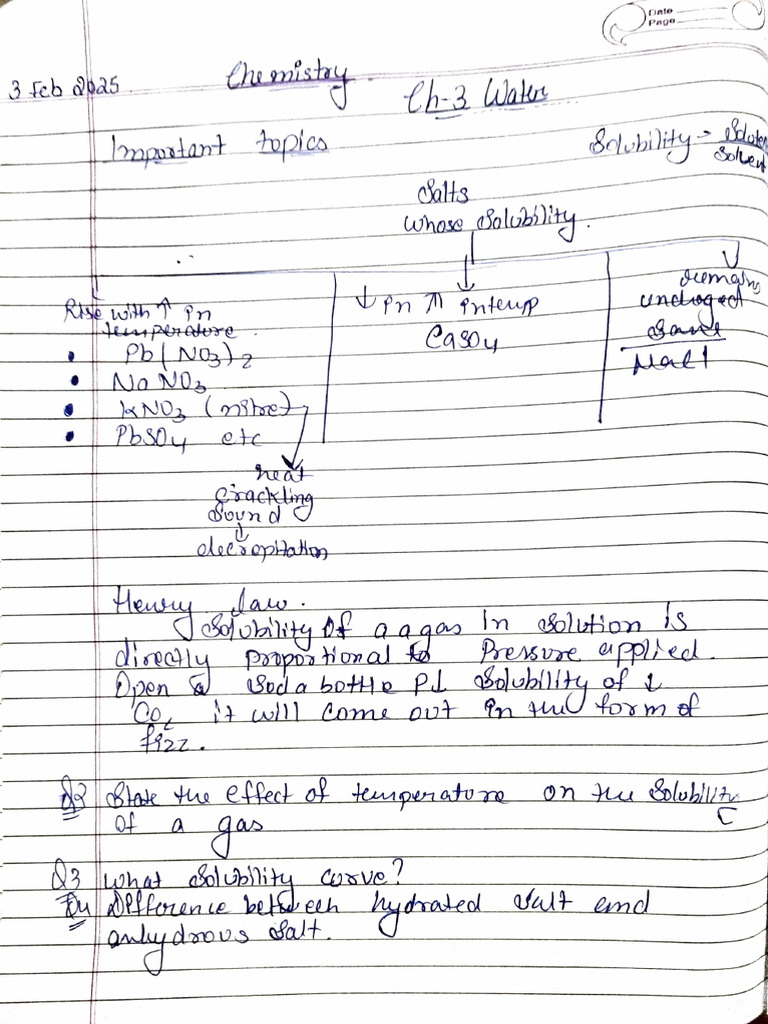 Date
Page
3 Feb 2025
Chemistry
Ch-3 Water
Important topics
Solubility → Solute
Solvent
Salts
whose Solubility.
Rise with ↑ in
temperature
• Pb(NO3)2
• NaNO3
• KNO3 (nitre)
• PbSO4 etc
heat
crackling
Sound
↓
decrepitation
↓ in ↑ in temp
CaSO4
remains
unchaged
same
NaCl
Henry law.
Solubility of a a gas in solution is
directly proportional to Pressure applied.
Open a Soda bottle P↓ Solubility of ↓
CO2 it will come out in the form of
fizz.
Q2 State the effect of temperature on the Solubility
of a gas
Q3 What Solubility curve?
Q4 Difference between hydrated Salt and
anhydrous Salt.